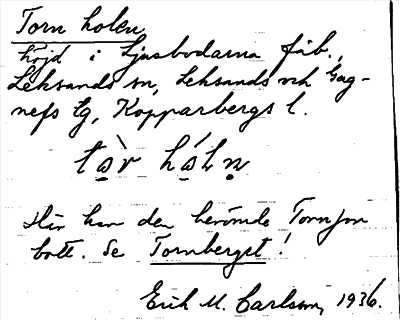 Torn holen
höjd i Ljusbodarna fäb.,
Leksands sn, Leksands och Gag-
nefs tg, Kopparbergs l.
tò̱r hó̱lṇ
Här har den berömde Tornjon
bott. Se Tornberget!
Erik M. Carlsson, 1936.